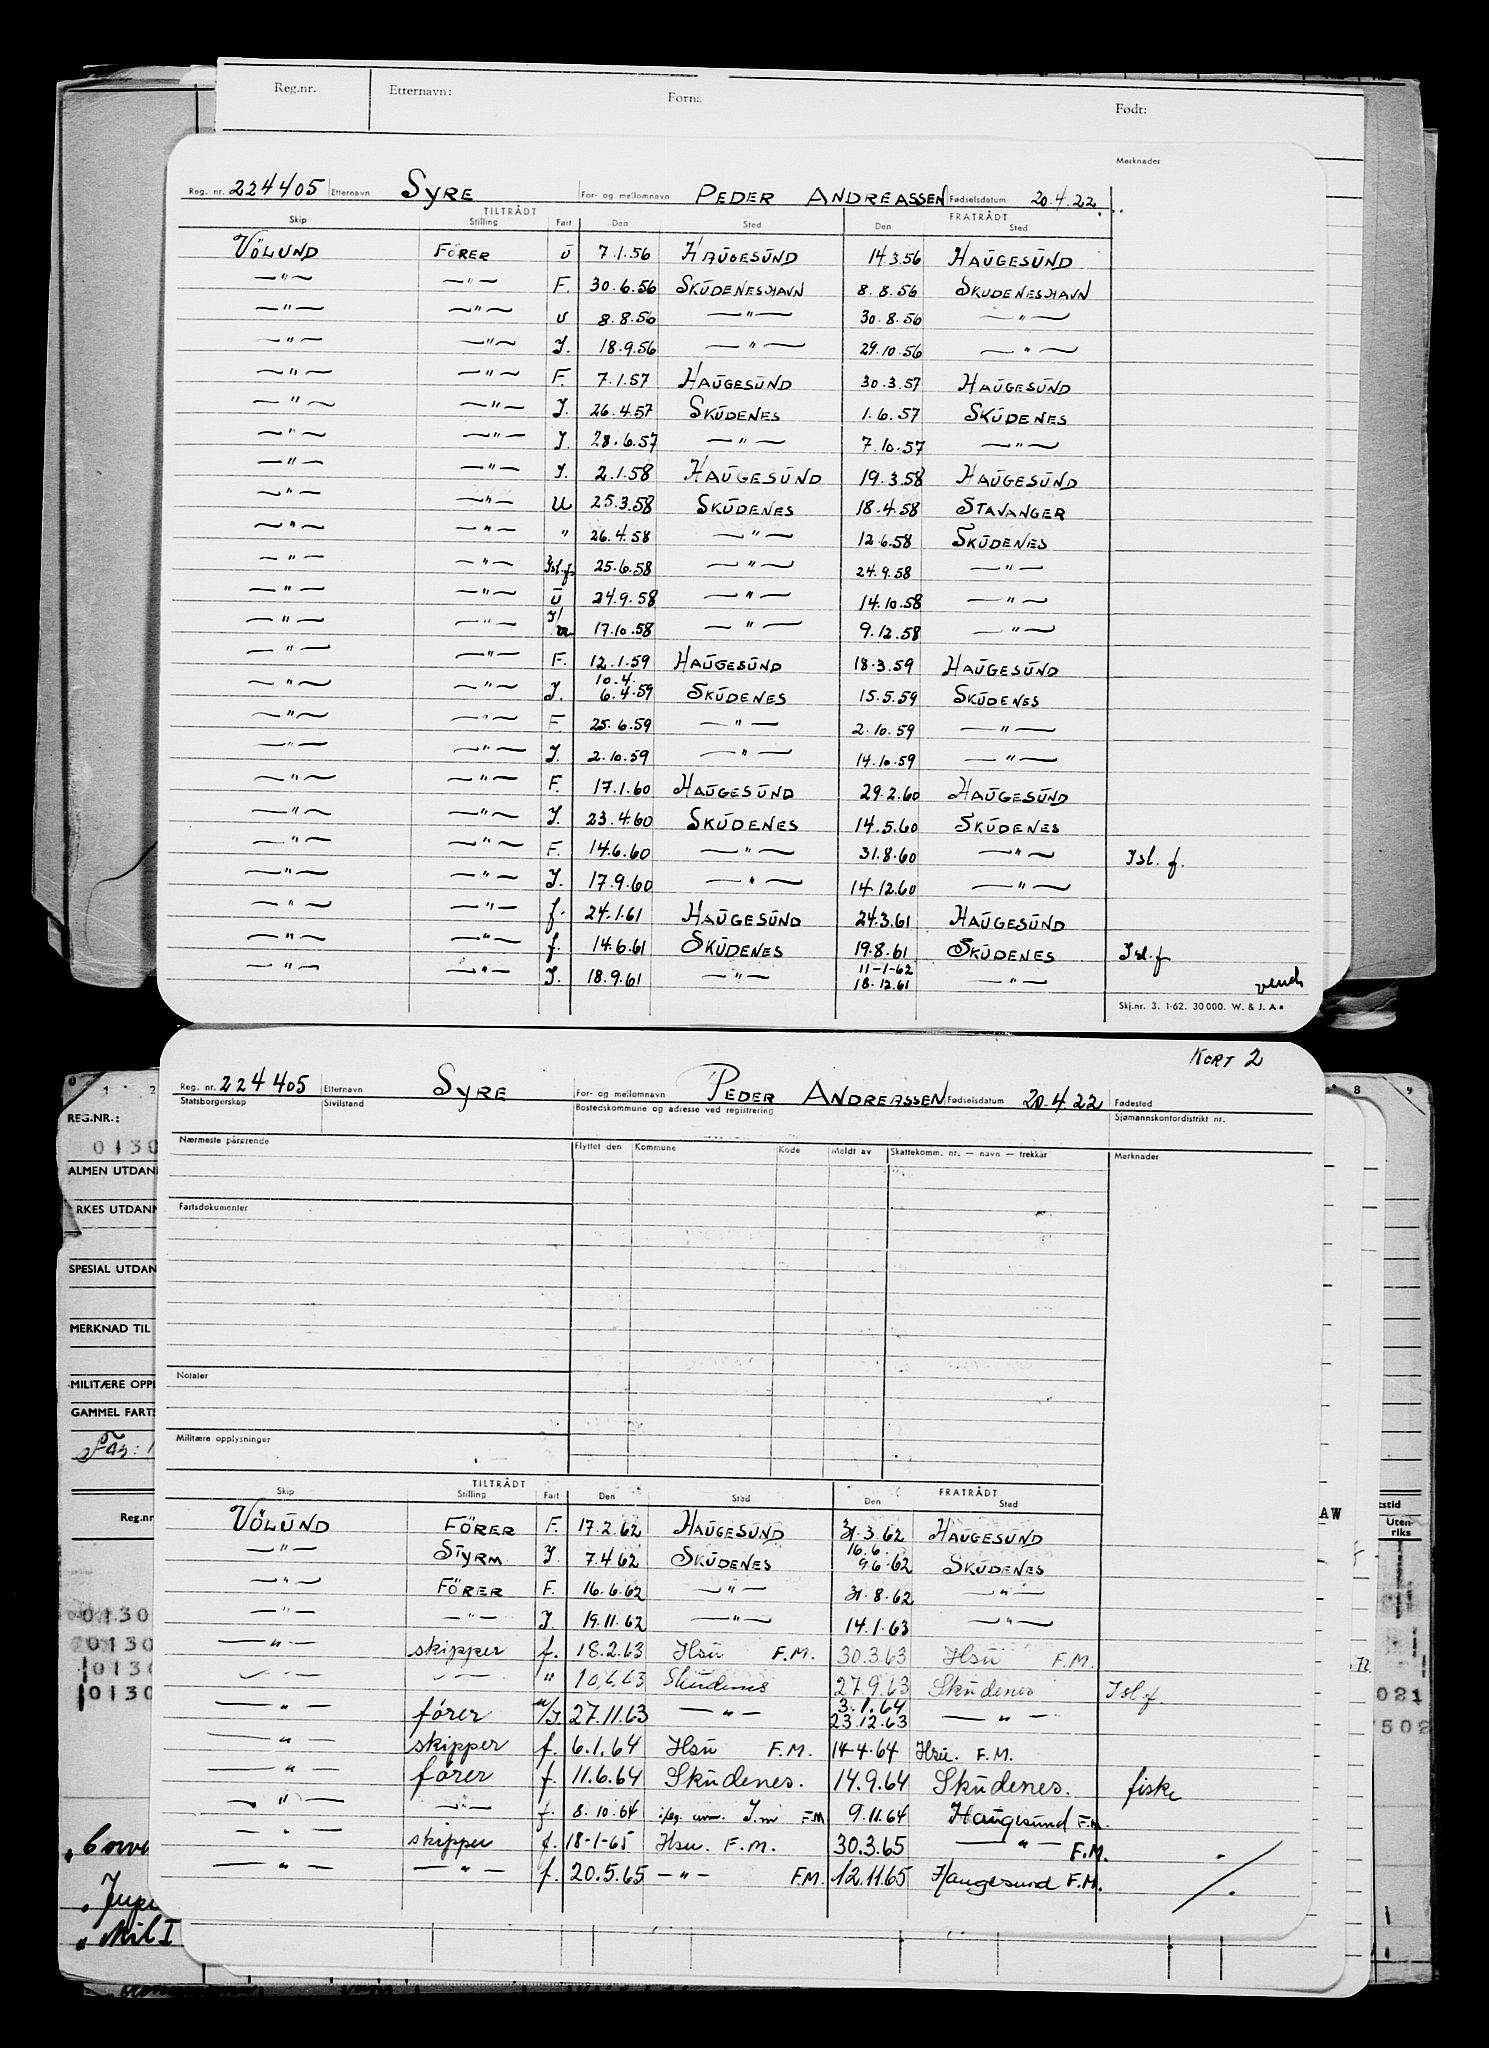 Reg.nr. Etternavn: Forn. Født:
Merknader
Reg. nr. 224405 Etternavn SYRE For- og mellomnavn PEDER ANDREASSEN Fødselsdatum 20.4.22
TILTRÅDT FRATRÅDT
Skip Stilling Fart Den Sted Den Sted
VÖLUND FÖRER U 7.1.56 HAUGESUND 14.3.56 HAUGESUND
—"— —"— F. 30.6.56 SKUDENESHAVN 8.8.56 SKUDENESHAVN
—"— —"— U 8.8.56 —"— 30.8.56 —"—
—"— —"— I. 18.9.56 —"— 29.10.56 —"—
—"— —"— F. 7.1.57 HAUGESUND 30.3.57 HAUGESUND
—"— —"— I. 26.4.57 SKUDENES 1.6.57 SKUDENES
—"— —"— I. 28.6.57 —"— 7.10.57 —"—
—"— —"— I. 2.1.58 HAUGESUND 19.3.58 HAUGESUND
—"— —"— U 25.3.58 SKUDENES 18.4.58 STAVANGER
—"— —"— " 26.4.58 —"— 12.6.58 SKUDENES
—"— —"— Isl.f. 25.6.58 —"— 24.9.58 —"—
—"— —"— U 24.9.58 —"— 14.10.58 —"—
—"— —"— I/u 17.10.58 —"— 9.12.58 —"—
—"— —"— F. 12.1.59 HAUGESUND 18.3.59 HAUGESUND
10.4.
—"— —"— I. 6.4.59 SKUDENES 15.5.59 SKUDENES
—"— —"— F. 25.6.59 —"— 2.10.59 —"—
—"— —"— I. 2.10.59 —"— 14.10.59 —"—
—"— —"— F. 17.1.60 HAUGESUND 29.2.60 HAUGESUND
—"— —"— I. 23.4.60 SKUDENES 14.5.60 SKUDENES
—"— —"— F. 14.6.60 —"— 31.8.60 —"— Isl. f.
—"— —"— I. 17.9.60 —"— 14.12.60 —"—
—"— —"— f. 24.1.61 HAUGESUND 24.3.61 HAUGESUND
—"— —"— f. 14.6.61 SKUDENES 19.8.61 SKUDENES Isl.f
11-1-62
—"— —"— I. 18.9.61 —"— 18.12.61 —"— vend
Skj.nr. 3. 1-62. 30000. W. & J. A s
KORT 2
Reg. nr. 224405 Etternavn SYRE For- og mellomnavn PEDER ANDREASSEN Fødselsdatum 20.4.22 Fødested
Statsborgerskap Sivilstand Bostedskommune og adresse ved registrering Sjømannskontordistrikt nr.
Nærmeste pårørende Flyttet den Kommune Kode Meldt av Skattekomm. nr. — navn — trekkår Merknader
Fartsdokumenter
Notater
Militære opplysninger
TILTRÅDT FRATRÅDT
Skip Stilling Fart Den Sted Den Sted
VÖLUND FÖRER F. 17.2.62 HAUGESUND 31.3.62 HAUGESUND
16.6.
—"— STYRM I. 7.4.62 SKUDENES 9.6.62 SKUDENES
—"— FÖRER F. 16.6.62 —"— 31.8.62 —"—
—"— —"— I. 19.11.62 —"— 14.1.63 —"—
—"— skipper f. 18.2.63 Hsu F.M. 30.3.63 Hsu F.M.
—"— —"— " 10.6.63 Skudenes 27.9.63 Skudenes Isl.f.
3.1.64
—"— fører u/I. 27.11.63 —"— 23.12.63 —"—
—"— skipper f. 6.1.64 Hsu F.M. 14-4.64 Hsu. F.M.
—"— fører f. 11.6.64 Skudenes. 14.9.64 Skudenes. fiske
—"— —"— f. 8.10.64 F.M 9.11.64 Haugesund F.M.
—"— skipper f. 18-1-65 Hsu. F.M. 30.3.65 —"— F.M.
—"— —"— f. 20.5.65 —"— F.M. 12.11.65 Haugesund F.M.
0 1 2 8 9
REG.NR.:
0130
ALMEN UTDAN
RKES UTDAN
SPESIAL UTDAN
MERKNAD TIL
MILITÆRE OPPL
GAMMEL FARTS
Far:
Reg.nr
0130
0130
0130
0130
Mil I
AW
Uten-
riks
72
021
502